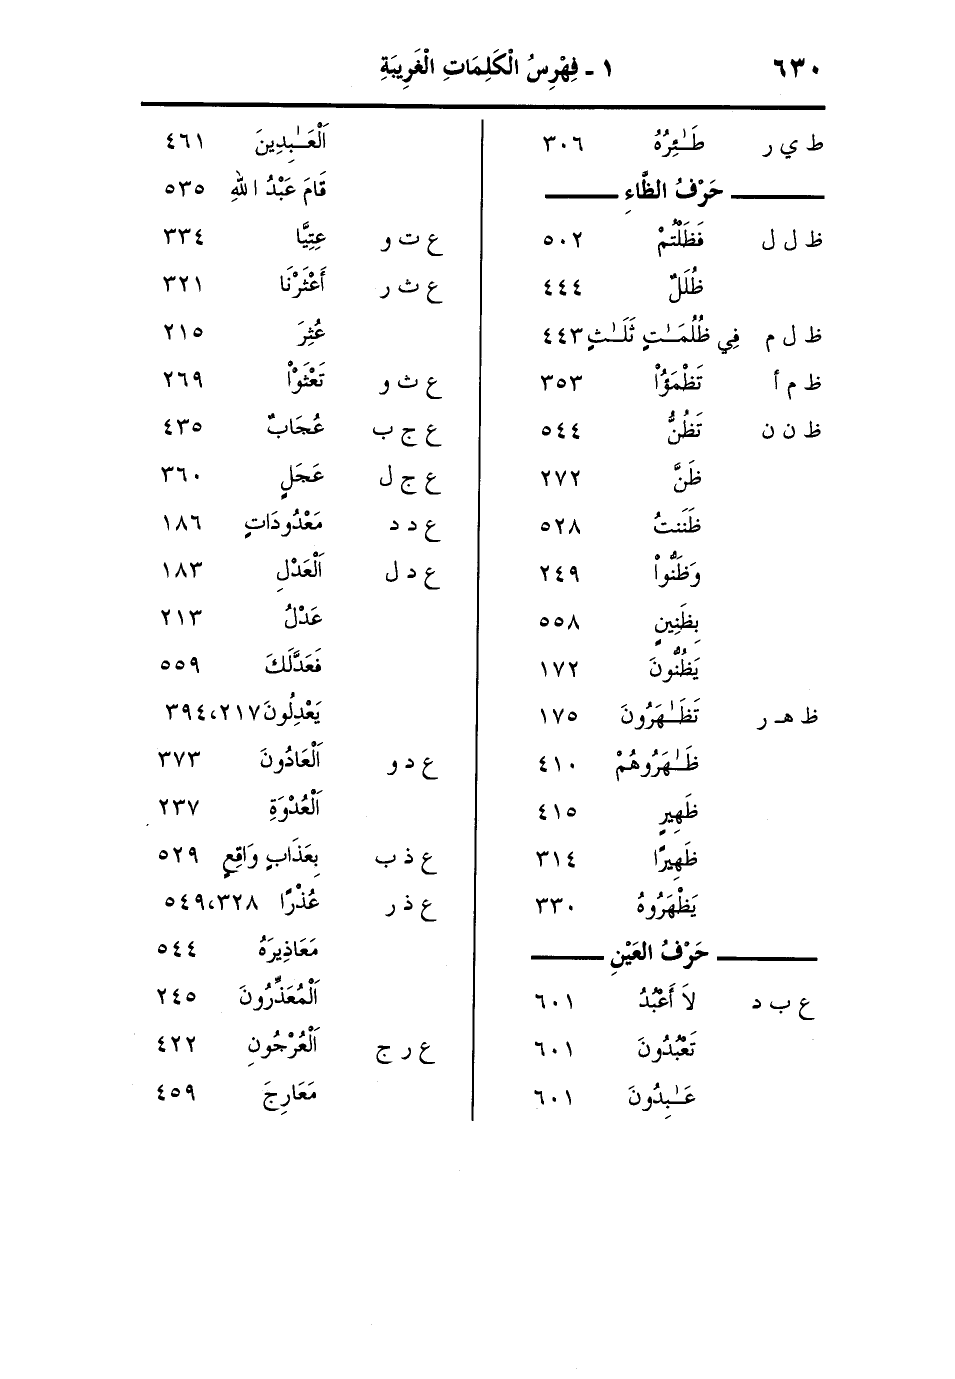 ٦٣٠ ١ - فِهْرِسُ الْكَلِمَاتِ الْغَرِيبَةِ
ط ي ر طَـٰٓئِرُهُ ٣٠٦
حَرْفُ الظَّاءِ
ظ ل ل فَظَلْتُمْ ٥٠٢
ظُلَلٌ ٤٤٤
ظ ل م فِي ظُلُمَـٰتٍ ثَلَـٰثٍ ٤٤٣
ظ م أ تَظْمَؤُاْ ٣٥٣
ظ ن ن تَظُنُّ ٥٤٤
ظَنَّ ٢٧٢
ظَنَنتُ ٥٢٨
وَظَنُّواْ ٢٤٩
بِظَنِينٍ ٥٥٨
يَظُنُّونَ ١٧٢
ظ هـ ر تَظَـٰهَرُونَ ١٧٥
ظَـٰهَرُوهُمْ ٤١٠
ظَهِيرٍ ٤١٥
ظَهِيرًا ٣١٤
يَظْهَرُوهُ ٣٣٠
حَرْفُ العَيْنِ
ع ب د لاَ أَعْبُدُ ٦٠١
تَعْبُدُونَ ٦٠١
عَـٰبِدُونَ ٦٠١
اَلْعَـٰبِدِينَ ٤٦١
قَامَ عَبْدُ اللهِ ٥٣٥
ع ت و عِتِيًّا ٣٣٤
ع ث ر أَعْثَرْنَا ٣٢١
عُثِرَ ٢١٥
ع ث و تَعْثَوْاْ ٢٦٩
ع ج ب عُجَابٌ ٤٣٥
ع ج ل عَجَلٍ ٣٦٠
ع د د مَعْدُودَاتٍ ١٨٦
ع د ل اَلْعَدْلِ ١٨٣
عَدْلُ ٢١٣
فَعَدَّلَكَ ٥٥٩
يَعْدِلُونَ ٢١٧،٣٩٤
ع د و اَلْعَادُونَ ٣٧٣
اَلْعُدْوَةِ ٢٣٧
ع ذ ب بِعَذَابٍ وَاقِعٍ ٥٢٩
ع ذ ر عُذْرًا ٣٢٨،٥٤٩
مَعَاذِيرَهُ ٥٤٤
اَلْمُعَذِّرُونَ ٢٤٥
ع ر ج اَلْعُرْجُونِ ٤٢٢
مَعَارِجَ ٤٥٩